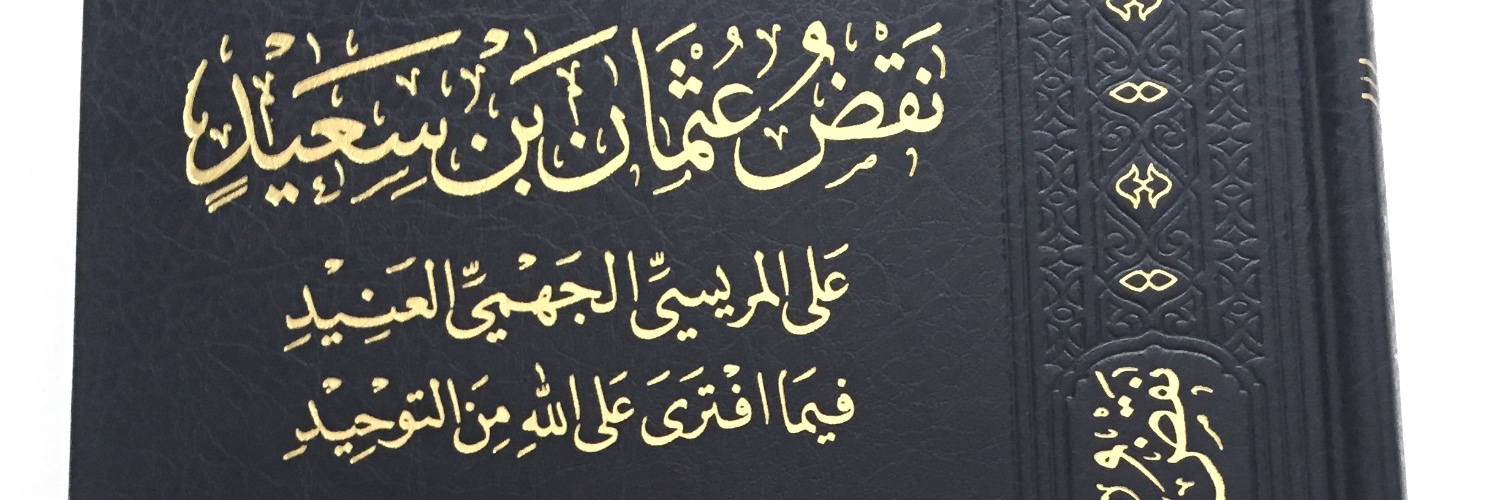 نَقْضُ عُثْمَان بْن سَعِيْدٍ
عَلى المريسيِّ الجَهْميِّ العَنِيْدِ
فيمَا افْتَرَى عَلى اللهِ مِنَ التوْحِيْدِ
نقض